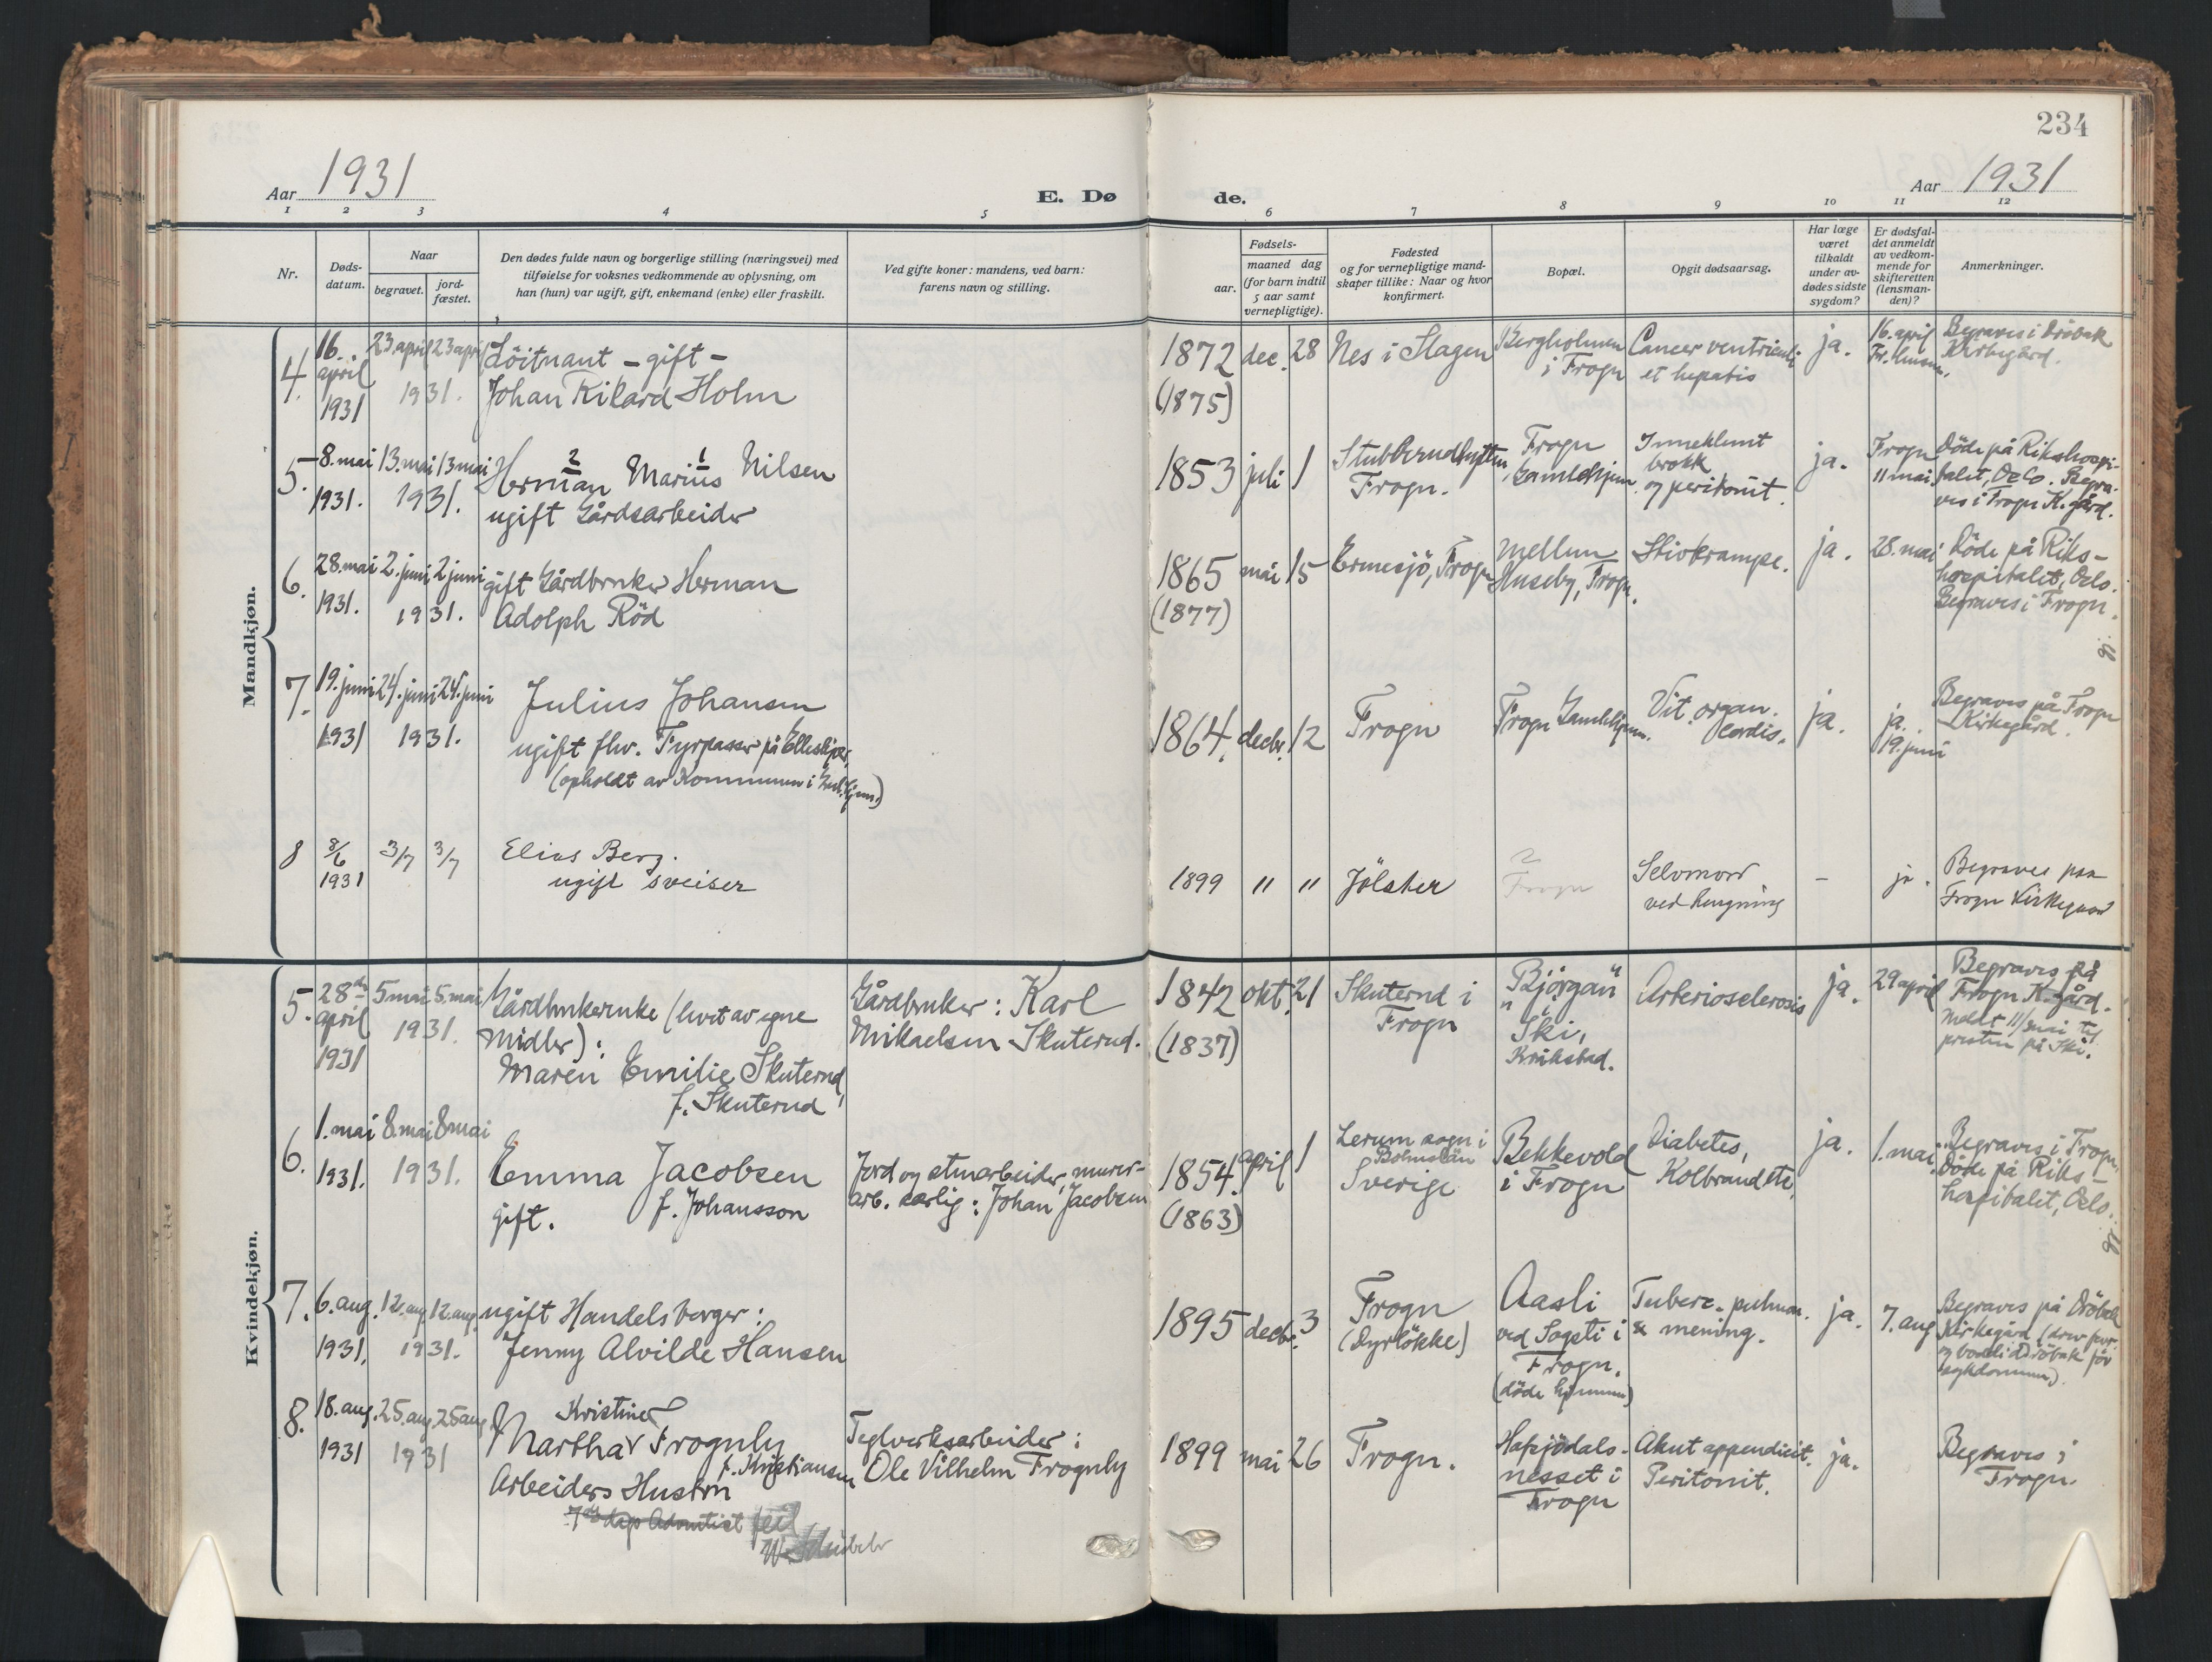 234
Aar 1931
E. Dø de.
Aar 1931
1 2 3 4 5 6 7 8 9 10 11 12
Nr.
Døds-
datum.
Naar
begravet.
jord-
fæstet.
Den dødes fulde navn og borgerlige stilling (næringsvei) med
tilføielse for voksnes vedkommende av oplysning, om
han (hun) var ugift, gift, enkemand (enke) eller fraskilt.
Ved gifte koner: mandens, ved barn:
farens navn og stilling.
Fødsels-
aar.
maaned dag
(for barn indtil
5 aar samt
vernepligtige).
Fødested
og for vernepligtige mand-
skaper tillike: Naar og hvor
konfirmert.
Bopæl.
Opgit dødsaarsag.
Har læge
været
tilkaldt
under av-
dødes sidste
sygdom?
Er dødsfal-
det anmeldt
av vedkom-
mende for
skifteretten
(lensman-
den)?
Anmerkninger.
Mandkjøn.
4.
16.
april
1931
23 april 23 april
1931.
Löitnant – gift –
Johan Rikard Holm
1872
(1875)
dec. 28
Nes i Slagen
Bergholmen
i Frogn
Cancer ventriculi
et hepatis
ja.
16. april
Begraves i Dröbak
Kirkegård.
5.
8. mai
1931.
13. mai 13 mai
1931.
2 1
Herman Marius Nilsen
ugift Gårdsarbeider
1853 juli 1
Stubberudhytten
Frogn.
Frogn
Gamlehjem
Inneklemt
brokk
og peritonit.
ja.
Frogn
11 mai
Döde på Rikshospi-
talet, Oslo. Begra-
ves i Frogn K.gård.
6.
28. mai
1931.
2. juni 2 juni
1931.
gift Gårdbruker Herman
Adolph Röd
1865
(1877)
mai 15
Ermesjö, Frogn
Mellum
Huseby, Frogn.
Stivkrampe.
ja.
28. mai
Döde på Riks-
hospitalet, Oslo.
Begraves i Frogn.
7.
19. juni
1931
24. juni 24. juni
1931.
Julius Johansen
ugift fhv. Fyrpasser på
(opholdt av Kommunen i
1864. decbr. 12
Frogn
Frogn Gamlehjem.
Vit. organ.
cordis.
ja.
ja.
19. juni
Begraves på Frogn
Kirkegård.
8
8/6
1931
3/7 3/7
Elias Berg.
ugift sveiser
1899 " "
Jölster
?
Frogn
Selvmord
ved hengning
–
ja.
Begraves paa
Frogn Kirkegaard
Kvindekjøn.
5.
28de
april
1931
5 mai 5. mai
1931.
Gårdbrukerenke (levet av egne
Midler):
Maren Emilie Skuterud,
f. Skuterud
Gårdbruker: Karl
Mikaelsen Skuterud.
1842
(1837)
okt. 21
Skuterud i
Frogn
"Björgan"
i
Ski,
Kråkstad.
Arteriosclerosis
ja.
29 april
Begraves på
Frogn K.gård.
Meldt 11/mai til
presten på Ski.
6.
1. mai
1931.
8. mai 8 mai
1931.
Emma Jacobsen
gift. f. Johansson
Jord og stenarbeider, murer-
arb. særlig: Johan Jacobsen
1854.
(1863)
april 1
Lerum sogn i
Sverige
Bekkevold
i Frogn
Diabetes,
Kolbrand
ja.
1. mai.
Begraves i Frogn.
Döde på Riks-
hospitalet, Oslo.
7.
6. aug.
1931.
12. aug. 12. aug.
1931.
ugift Handelsborger:
Jenny Alvilde Hansen
1895 decbr. 3
Frogn
(Dyrlökke)
Aasli
ved Sogsti i
Frogn.
(döde hjemme)
Tuberc. pulmon.
& mening.
ja.
7. aug
Begraves på Dröbak
Kirkegård
8.
18. aug.
1931
25. aug. 25 aug
1931
Kristine
Martha Frognly
f. Kristiansen
Arbeiders Hustru
7de dags Adventist feil
Teglverksarbeider:
Ole Vilhelm Frognly
1899 mai 26
Frogn.
nesset i
Frogn
Akut appendicit.
Peritonit.
ja.
Begraves i
Frogn.